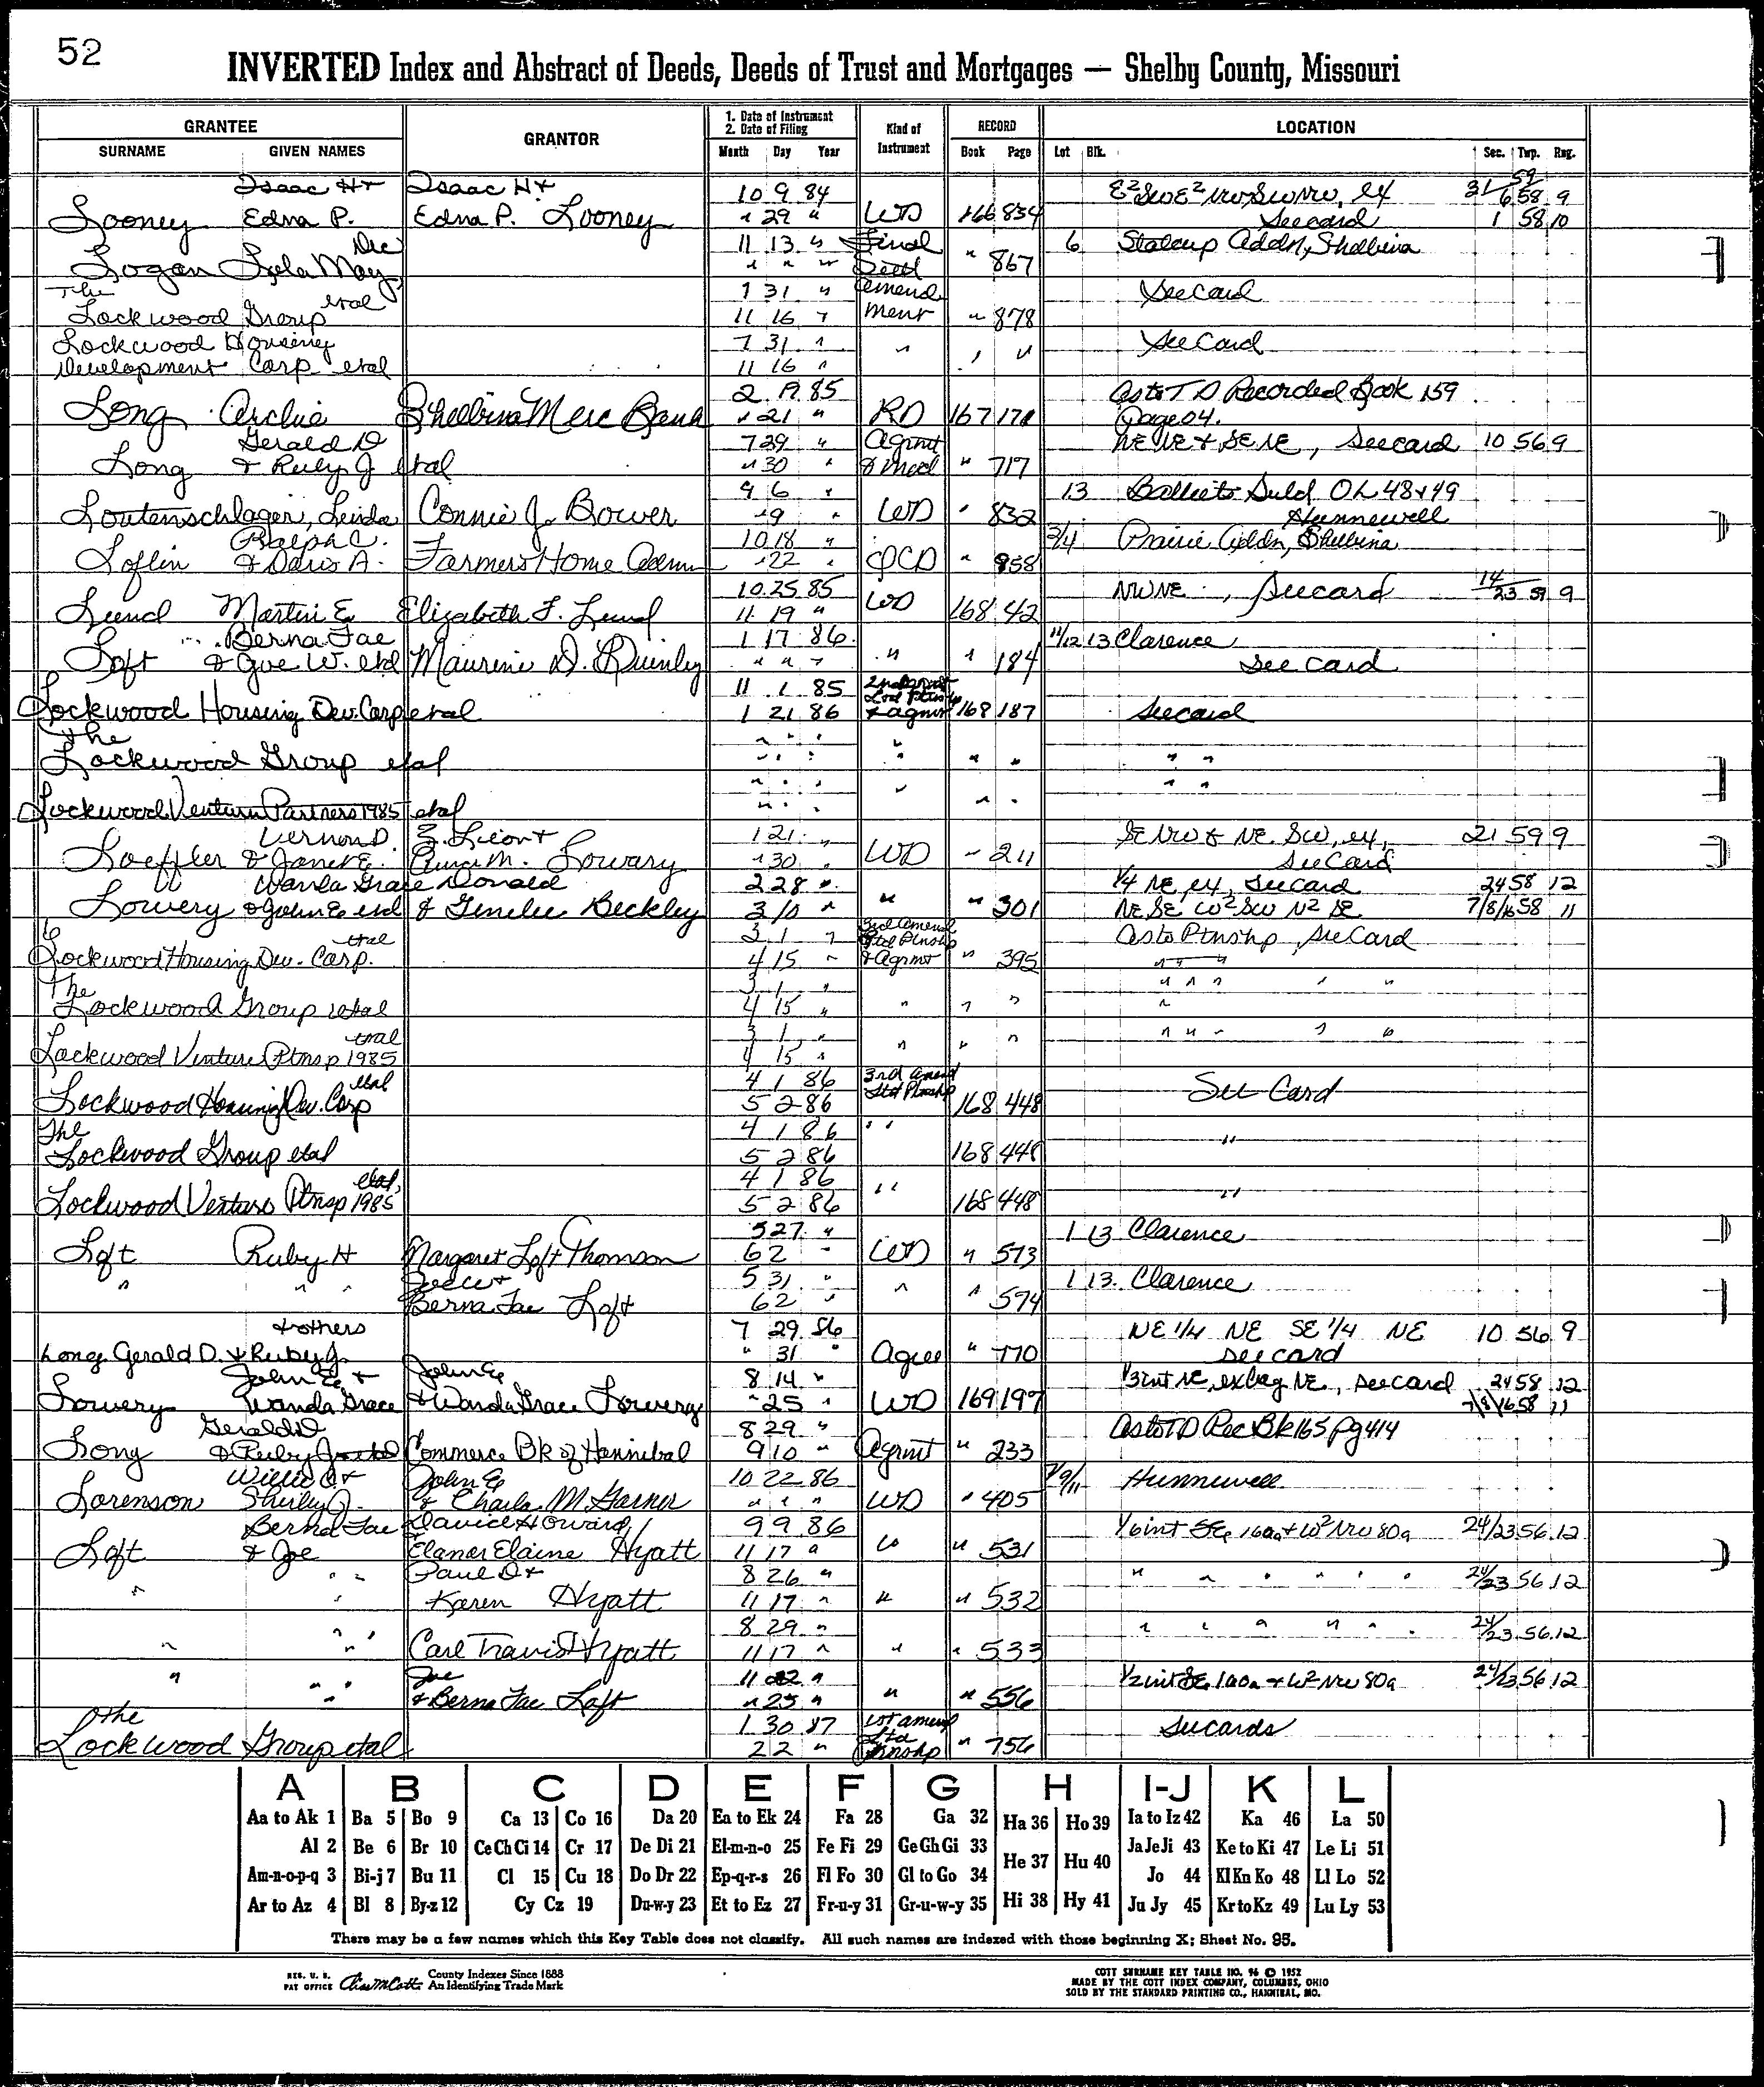 52
INVERTED Index and Abstract of Deeds, Deeds of Trust and Mortgages — Shelby County, Missouri
GRANTEE GRANTOR 1. Date of Instrument Kind of RECORD LOCATION
2. Date of Filing Instrument
SURNAME GIVEN NAMES Month Day Year Book Page Lot Blk. Sec. Twp. Rng.
Isaac H + Isaac H + 10 9 84 31 59
Looney Edna P. Edna P. Looney " 29 " WD 166 834 See card 1 58 10
Dec 11 13 " Final 6 Stalcup Addn, Shelbina
Logan Lela May " " " Deed " 867
The etal 7 31 " Amend See Card
Lockwood Group 11 16 " ment " 878
Lockwood Housing 7 31 " " See Card
Development Corp etal 11 16 "
2 19 85 As to TD Recorded Book 159
Long Archie Shelbina Merc Bank " 21 " RD 167 178 Page 04.
Gerald D 7 29 " Agrmt NE NE + SE NE, See card 10 56 9
Long & Ruby J etal " 30 " & Mod " 717
9 6 " 13 Balliets Subd OL 48 & 49
Loutenschlager, Linda Connie J. Bower " 9 " WD " 832 Hunnewell
Ralph C. 10 18 " 3/4 Prairie Addn, Shelbina
Loflin & Doris A. Farmers Home Admn " 22 " QCD " 958
10 25 85 NW NE, See card 14/23 59 9
Lund Martin E Elizabeth F. Lund 11 19 " WD 168 42
Berna Fae 1 17 86 11/12 13 Clarence
Loft & Joe W. etal Maurine D. Quinley " " " " " 184 See card
11 1 85 2nd
Lockwood Housing Dev. Corp etal 1 21 86 & agrmt 168 187 See card
The " " "
Lockwood Group etal " " " " " " " "
" " " " "
Lockwood Venture Partners 1985 etal " " " " " "
Vernon D. Z. Leion + 1 21 " SE NW & NE SW, ex, 21 59 9
Loeffler & Janet E. M. Lowary " 30 " WD " 211 See Card
Wanda Grace Donald 2 28 " 1/4 NE ex, See card 24 58 12
Lowery & John E etal & Genelee Beckley 3 10 " " " 301 NE SE W2 SW N2 SE 7/8/16 58 11
etal 3 1 " 3rd Amend Ltd Ptnshp As to Ptnshp, See Card
Lockwood Housing Dev. Corp. 4 15 " & Agrmt " 395 " " "
The 3 1 " " " " " "
Lockwood Group etal 4 15 " " " " "
etal 3 1 " " " " " "
Lockwood Venture Ptnsp 1985 4 15 " " " "
etal 4 1 86 3rd Amend See Card
Lockwood Housing Dev. Corp 5 2 86 Ltd Ptnshp 168 448
The 4 1 86 " "
Lockwood Group etal 5 2 86 168 448 "
etal, 4 1 86
Lockwood Venture Ptnsp 1985 5 2 86 " " 168 448 "
5 27 " 1 13 Clarence
Loft Ruby H Margaret Loft Thomson 6 2 " WD " 573
" " " Joe W + 5 31 " " 1 13 Clarence
Berna Fae Loft 6 2 " " 574
& others 7 29 86 NE 1/4 NE SE 1/4 NE 10 56 9
Long Gerald D. & Ruby J. " 31 " Agree " 770 See card
John E + John E 8 14 " 1/3 int NE, ex beg NE, See card 24 58 12
Lowery Wanda Grace & Wanda Grace Lowery " 25 " WD 169 197 7/8/16 58 11
Gerald D 8 29 " As to TD Rec Bk 165 pg 414
Long & Ruby J etal Commerce Bk of Hannibal 9 10 " Agrmt " 233
Willie C + John E 10 22 86 7/9/11 Hunnewell
Lorenson Shirley J. & Charla M Garner " " " WD " 405
Berna Fae David Howard / 9 9 86 1/6 int SE 160a + W2 NW 80a 24/23 56 12
Loft & Joe Elaner Elaine Hyatt 11 17 " " 531
" " " Paul D + 8 26 " " " " " " " 24/23 56 12
Karen Hyatt 11 17 " " " 532
8 29 " " " " " " " 24/23 56 12
" " " Carl Travis Hyatt 11 17 " " " 533
" " " Joe 11 22 " 1/2 int SE 160a + W2 NW 80a 24/23 56 12
& Berna Fae Loft " 25 " " " 556
The 1 30 87 1st amend See cards
Lockwood Group etal 2 2 " Ltd Ptnshp " 756
A B C D E F G H I-J K L
Aa to Ak 1 Ba 5 Bo 9 Ca 13 Co 16 Da 20 En to Ek 24 Fa 28 Ga 32 Ha 36 Ho 39 Ia to Iz 42 Ka 46 La 50
Al 2 Be 6 Br 10 Ce Ch Ci 14 Cr 17 De Di 21 El-m-n-o 25 Fe Fi 29 Ge Gh Gi 33 He 37 Hu 40 Ja Je Ji 43 Ke to Ki 47 Le Li 51
Am-n-o-p-q 3 Bi-j 7 Bu 11 Cl 15 Cu 18 Do Dr 22 Ep-q-r-s 26 Fl Fo 30 Gl to Go 34 Jo 44 Kl Kn Ko 48 Ll Lo 52
Ar to Az 4 Bl 8 By-z 12 Cy Cz 19 Du-w-y 23 Et to Ez 27 Fr-u-y 31 Gr-u-w-y 35 Hi 38 Hy 41 Ju Jy 45 Kr to Kz 49 Lu Ly 53
There may be a few names which this Key Table does not classify. All such names are indexed with those beginning X; Sheet No. 95.
REG. U. S. PAT OFFICE County Indexes Since 1888
An Identifying Trade Mark
COTT SURNAME KEY TABLE NO. 96 © 1952
MADE BY THE COTT INDEX COMPANY, COLUMBUS, OHIO
SOLD BY THE STANDARD PRINTING CO., HANNIBAL, MO.